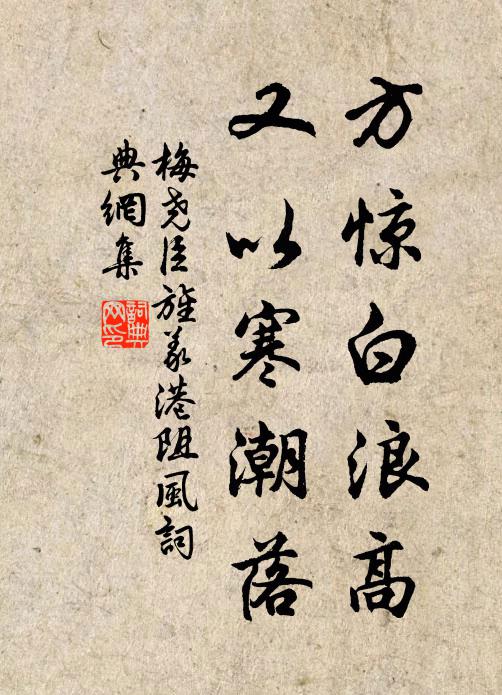 方惊白浪高
又以寒潮落
梅尧臣旌义港阻風词
典網集
詞典
网印